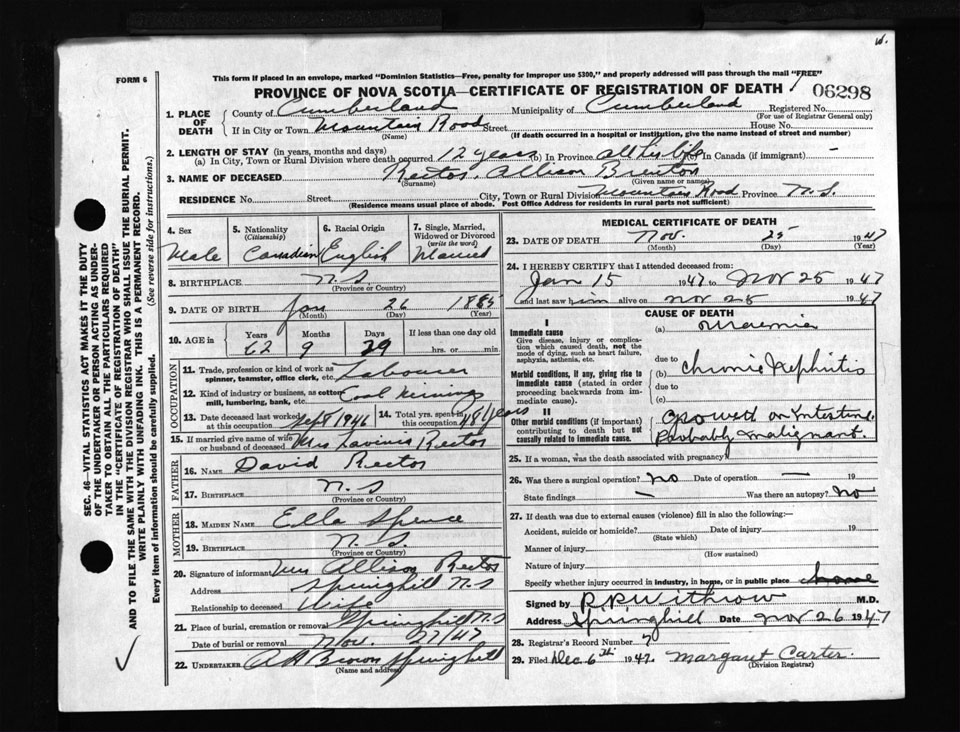 W.
FORM 6
This form if placed in an envelope, marked "Dominion Statistics—Free, penalty for improper use $300," and properly addressed will pass through the mail "FREE"
PROVINCE OF NOVA SCOTIA—CERTIFICATE OF REGISTRATION OF DEATH 06298
SEC. 46—VITAL STATISTICS ACT MAKES IT THE DUTY
OF THE UNDERTAKER OR PERSON ACTING AS UNDER-
TAKER TO OBTAIN ALL THE PARTICULARS REQUIRED
IN THE "CERTIFICATE OF REGISTRATION OF DEATH"
AND TO FILE THE SAME WITH THE DIVISION REGISTRAR WHO SHALL ISSUE THE BURIAL PERMIT.
WRITE PLAINLY WITH UNFADING INK. THIS IS A PERMANENT RECORD.
Every item of information should be carefully supplied. (See reverse side for instructions.)
1. PLACE OF DEATH
County of Cumberland Municipality of Cumberland Registered No.
(For use of Registrar General only)
If in City or Town Mountain Road Street House No.
(Name) (If death occurred in a hospital or institution, give the name instead of street and number)
2. LENGTH OF STAY (in years, months and days)
(a) In City, Town or Rural Division where death occurred 12 years (b) In Province all his life (c) In Canada (if immigrant) —
3. NAME OF DECEASED Rector. Allison Brenton
(Surname) (Given name or names)
RESIDENCE No. Street City, Town or Rural Division Mountain Road Province N.S.
(Residence means usual place of abode. Post Office Address for residents in rural parts not sufficient)
4. Sex
Male
5. Nationality
(Citizenship)
Canadian
6. Racial Origin
English
7. Single, Married,
Widowed or Divorced
(write the word)
Married
8. BIRTHPLACE N.S
(Province or Country)
9. DATE OF BIRTH Jan 26 1885
(Month) (Day) (Year)
10. AGE in Years Months Days If less than one day old
62 9 29 hrs. or min.
OCCUPATION
11. Trade, profession or kind of work as
spinner, teamster, office clerk, etc. Labourer
12. Kind of industry or business, as cotton
mill, lumbering, bank, etc. Coal Mining
13. Date deceased last worked
at this occupation. Sept 1946
14. Total yrs. spent in
this occupation. 48 years
15. If married give name of wife
or husband of deceased Mrs Lavinia Rector
FATHER
16. NAME David Rector
17. BIRTHPLACE N.S
(Province or Country)
MOTHER
18. MAIDEN NAME Ella Spence
19. BIRTHPLACE N.S.
(Province or Country)
20. Signature of informant Mrs Allison Rector
Address Springhill N.S
Relationship to deceased Wife
21. Place of burial, cremation or removal Springhill N.S
Date of burial or removal Nov. 27/47
22. UNDERTAKER A H Brown Springhill
(Name and address)
MEDICAL CERTIFICATE OF DEATH
23. DATE OF DEATH Nov. 25 1947
(Month) (Day) (Year)
24. I HEREBY CERTIFY that I attended deceased from:
Jan 15 1947 to Nov 25 1947
and last saw him alive on Nov 25 1947
CAUSE OF DEATH
I
Immediate cause
Give disease, injury or complica-
tion which caused death, not the
mode of dying, such as heart failure,
asphyxia, asthenia, etc.
(a) Uraemia
due to
Morbid conditions, if any, giving rise to
immediate cause (stated in order
proceeding backwards from im-
mediate cause).
(b) Chronic Nephritis
due to
(c)
II
Other morbid conditions (if important)
contributing to death but not
causally related to immediate cause.
Growth on Intestine.
Probably malignant.
25. If a woman, was the death associated with pregnancy
26. Was there a surgical operation? no Date of operation — 19
State findings — Was there an autopsy? no
27. If death was due to external causes (violence) fill in also the following:—
Accident, suicide or homicide? Date of injury 19
(State which)
Manner of injury
(How sustained)
Nature of injury
Specify whether injury occurred in industry, in home, or in public place home
Signed by R P Withrow M.D.
Address Springhill Date Nov 26 1947
28. Registrar's Record Number 7
29. Filed Dec 6th 1947. Margaret Carter.
(Division Registrar)